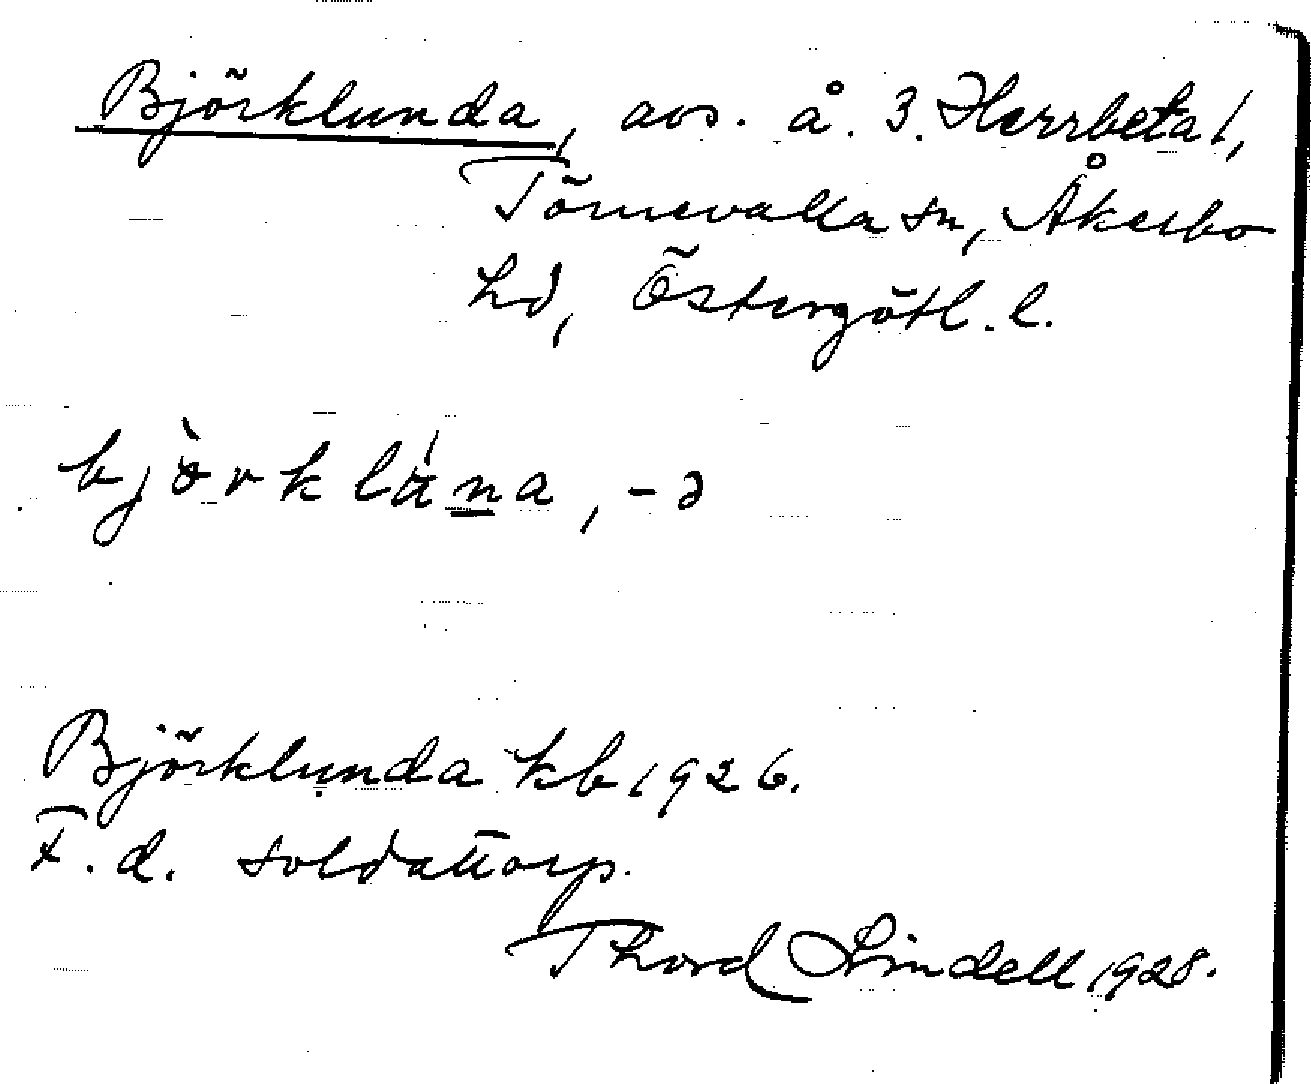 Björklunda, avs. å. 3. Herrbeta 1,
Törnevalla sn, Åkerbo
hd, Östergötl. l.
bjòrklána, -ə
Björklunda kb 1926.
F. d. soldattorp.
Thord Lindell 1928.